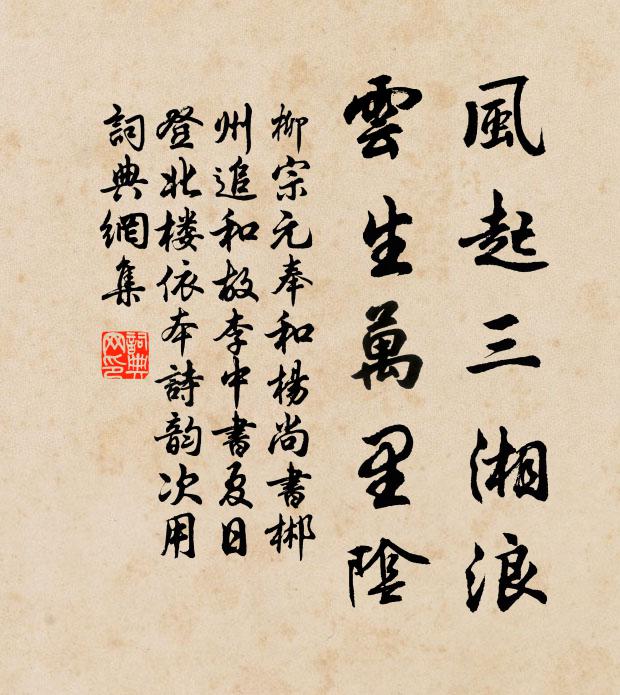 風起三湘浪
雲生萬里陰
柳宗元奉和楊尚書郴
州追和故李中書夏日
登北楼依本詩韵次用
詞典網集
詞典
网印